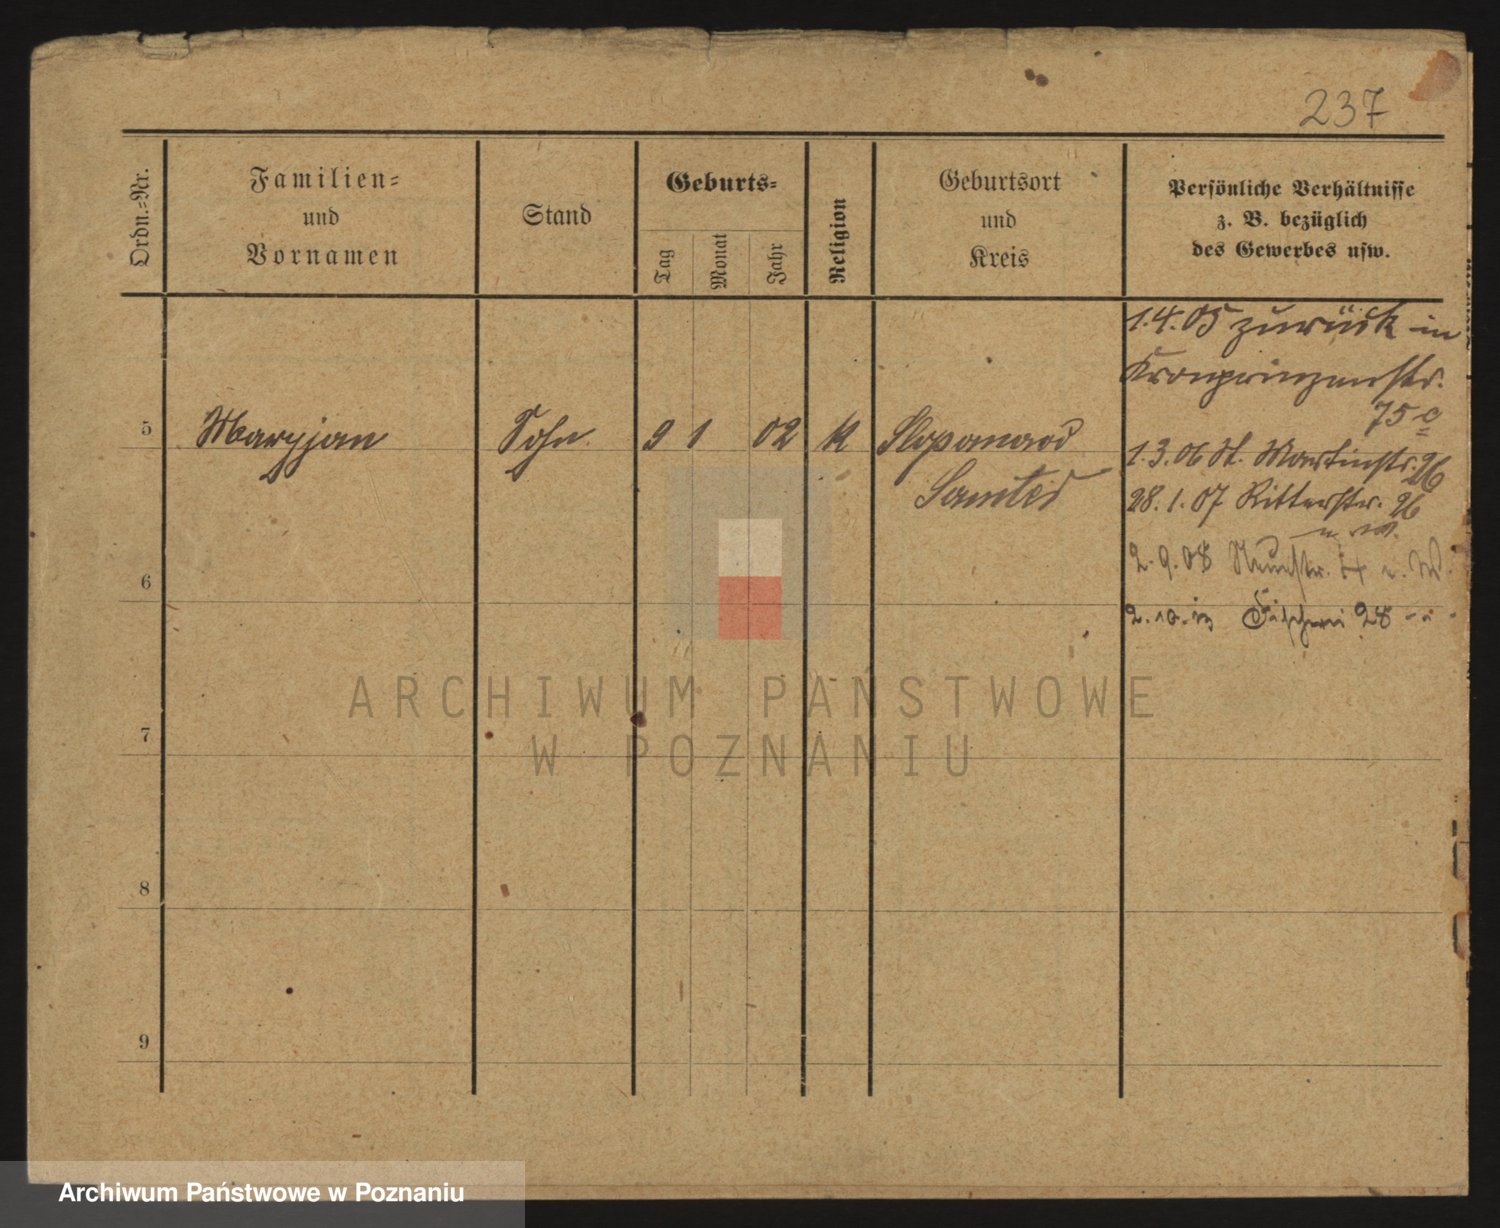 237
Ordn.-Nr.
Familien-
und
Vornamen
Stand
Geburts-
Tag
Monat
Jahr
Religion
Geburtsort
und
Kreis
Persönliche Verhältnisse
z. B. bezüglich
des Gewerbes usw.
1.4.05 zurück in
Kronprinzenstr.
75 c
5 Maryjan Sohn 9 1 02 K
Samter
1.3.06 St. Martinstr. 26
28.1.07 Ritterstr. 26
2.9.08
6
Fischerei 28
ARCHIWUM PAŃSTWOWE
W POZNANIU
7
8
9
Archiwum Państwowe w Poznaniu